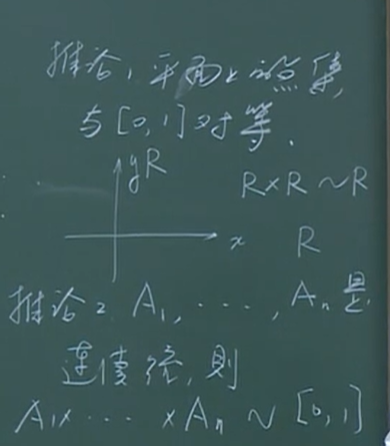 推论1 平面上的点集,
与[0,1]对等.
y R
R×R ~ R
x R
推论2 A₁, ⋯ , Aₙ 是
连续统, 则
A₁× ⋯ ×Aₙ ~ [0,1]